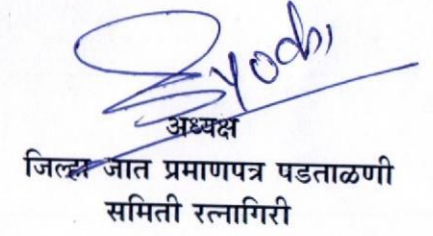 अध्यक्ष
जिल्हा जात प्रमाणपत्र पडताळणी
समिती रत्नागिरी